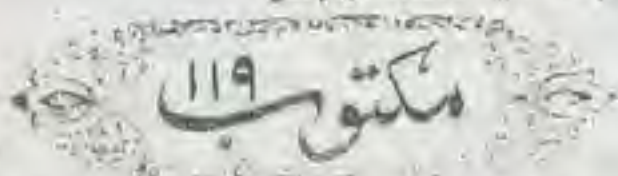 مکتوب ۱۱۹